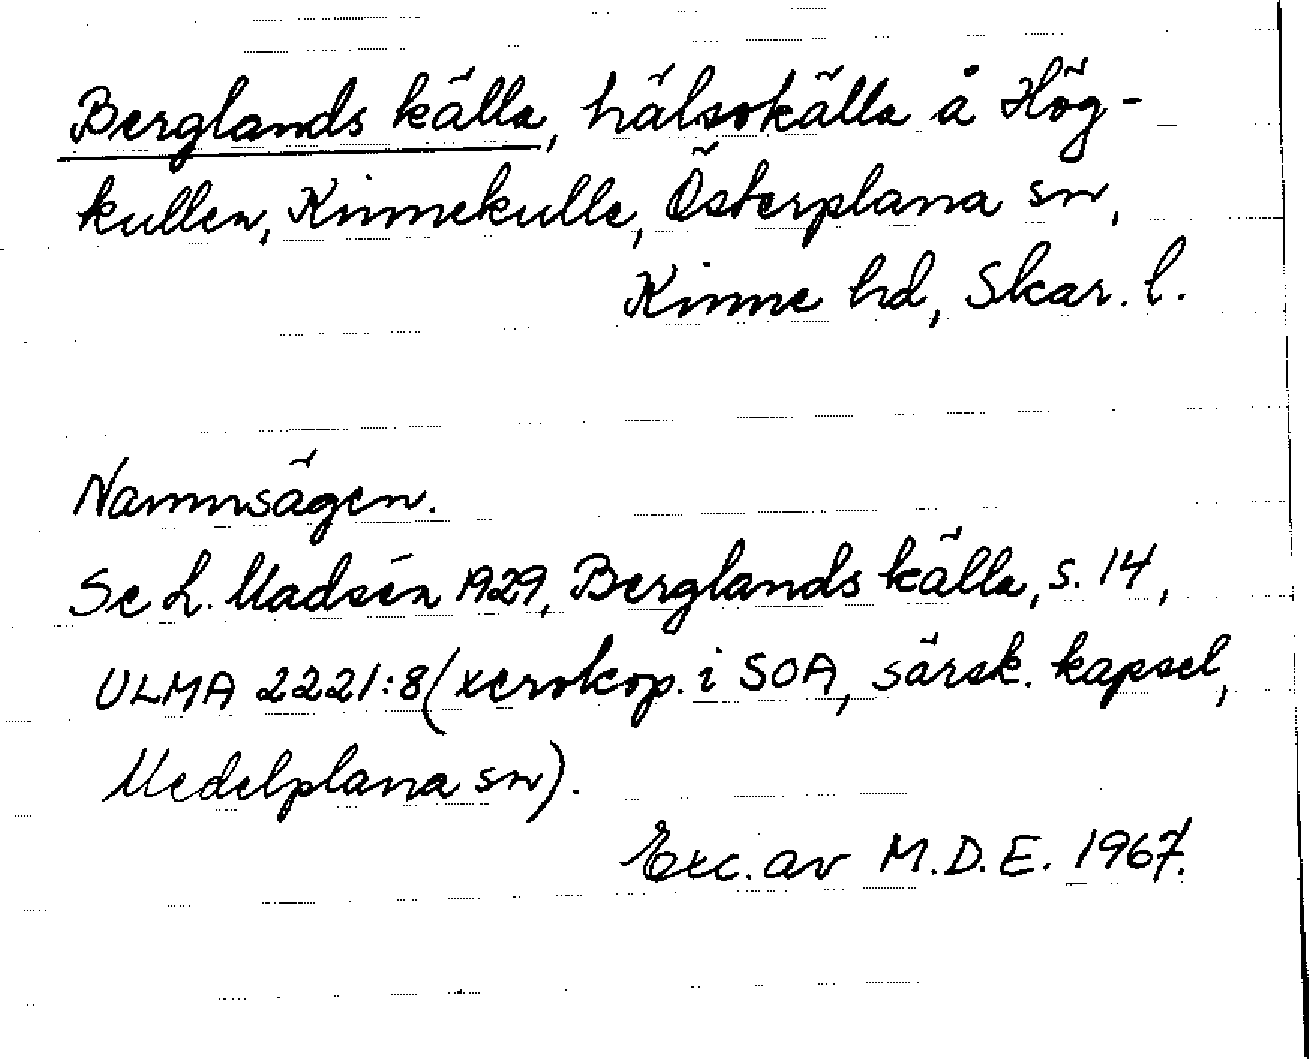 Berglands källa, hälsokälla å Hög-
kullen, Kinnekulle, Österplana sn,
Kinne hd, Skar. l.
Namnsägen.
Se L. Madsén 1929, Berglands källa, s. 14,
ULMA 2221:8 (xerokop. i SOA, särsk. kapsel,
Medelplana sn).
Exc. av M.D.E. 1967.